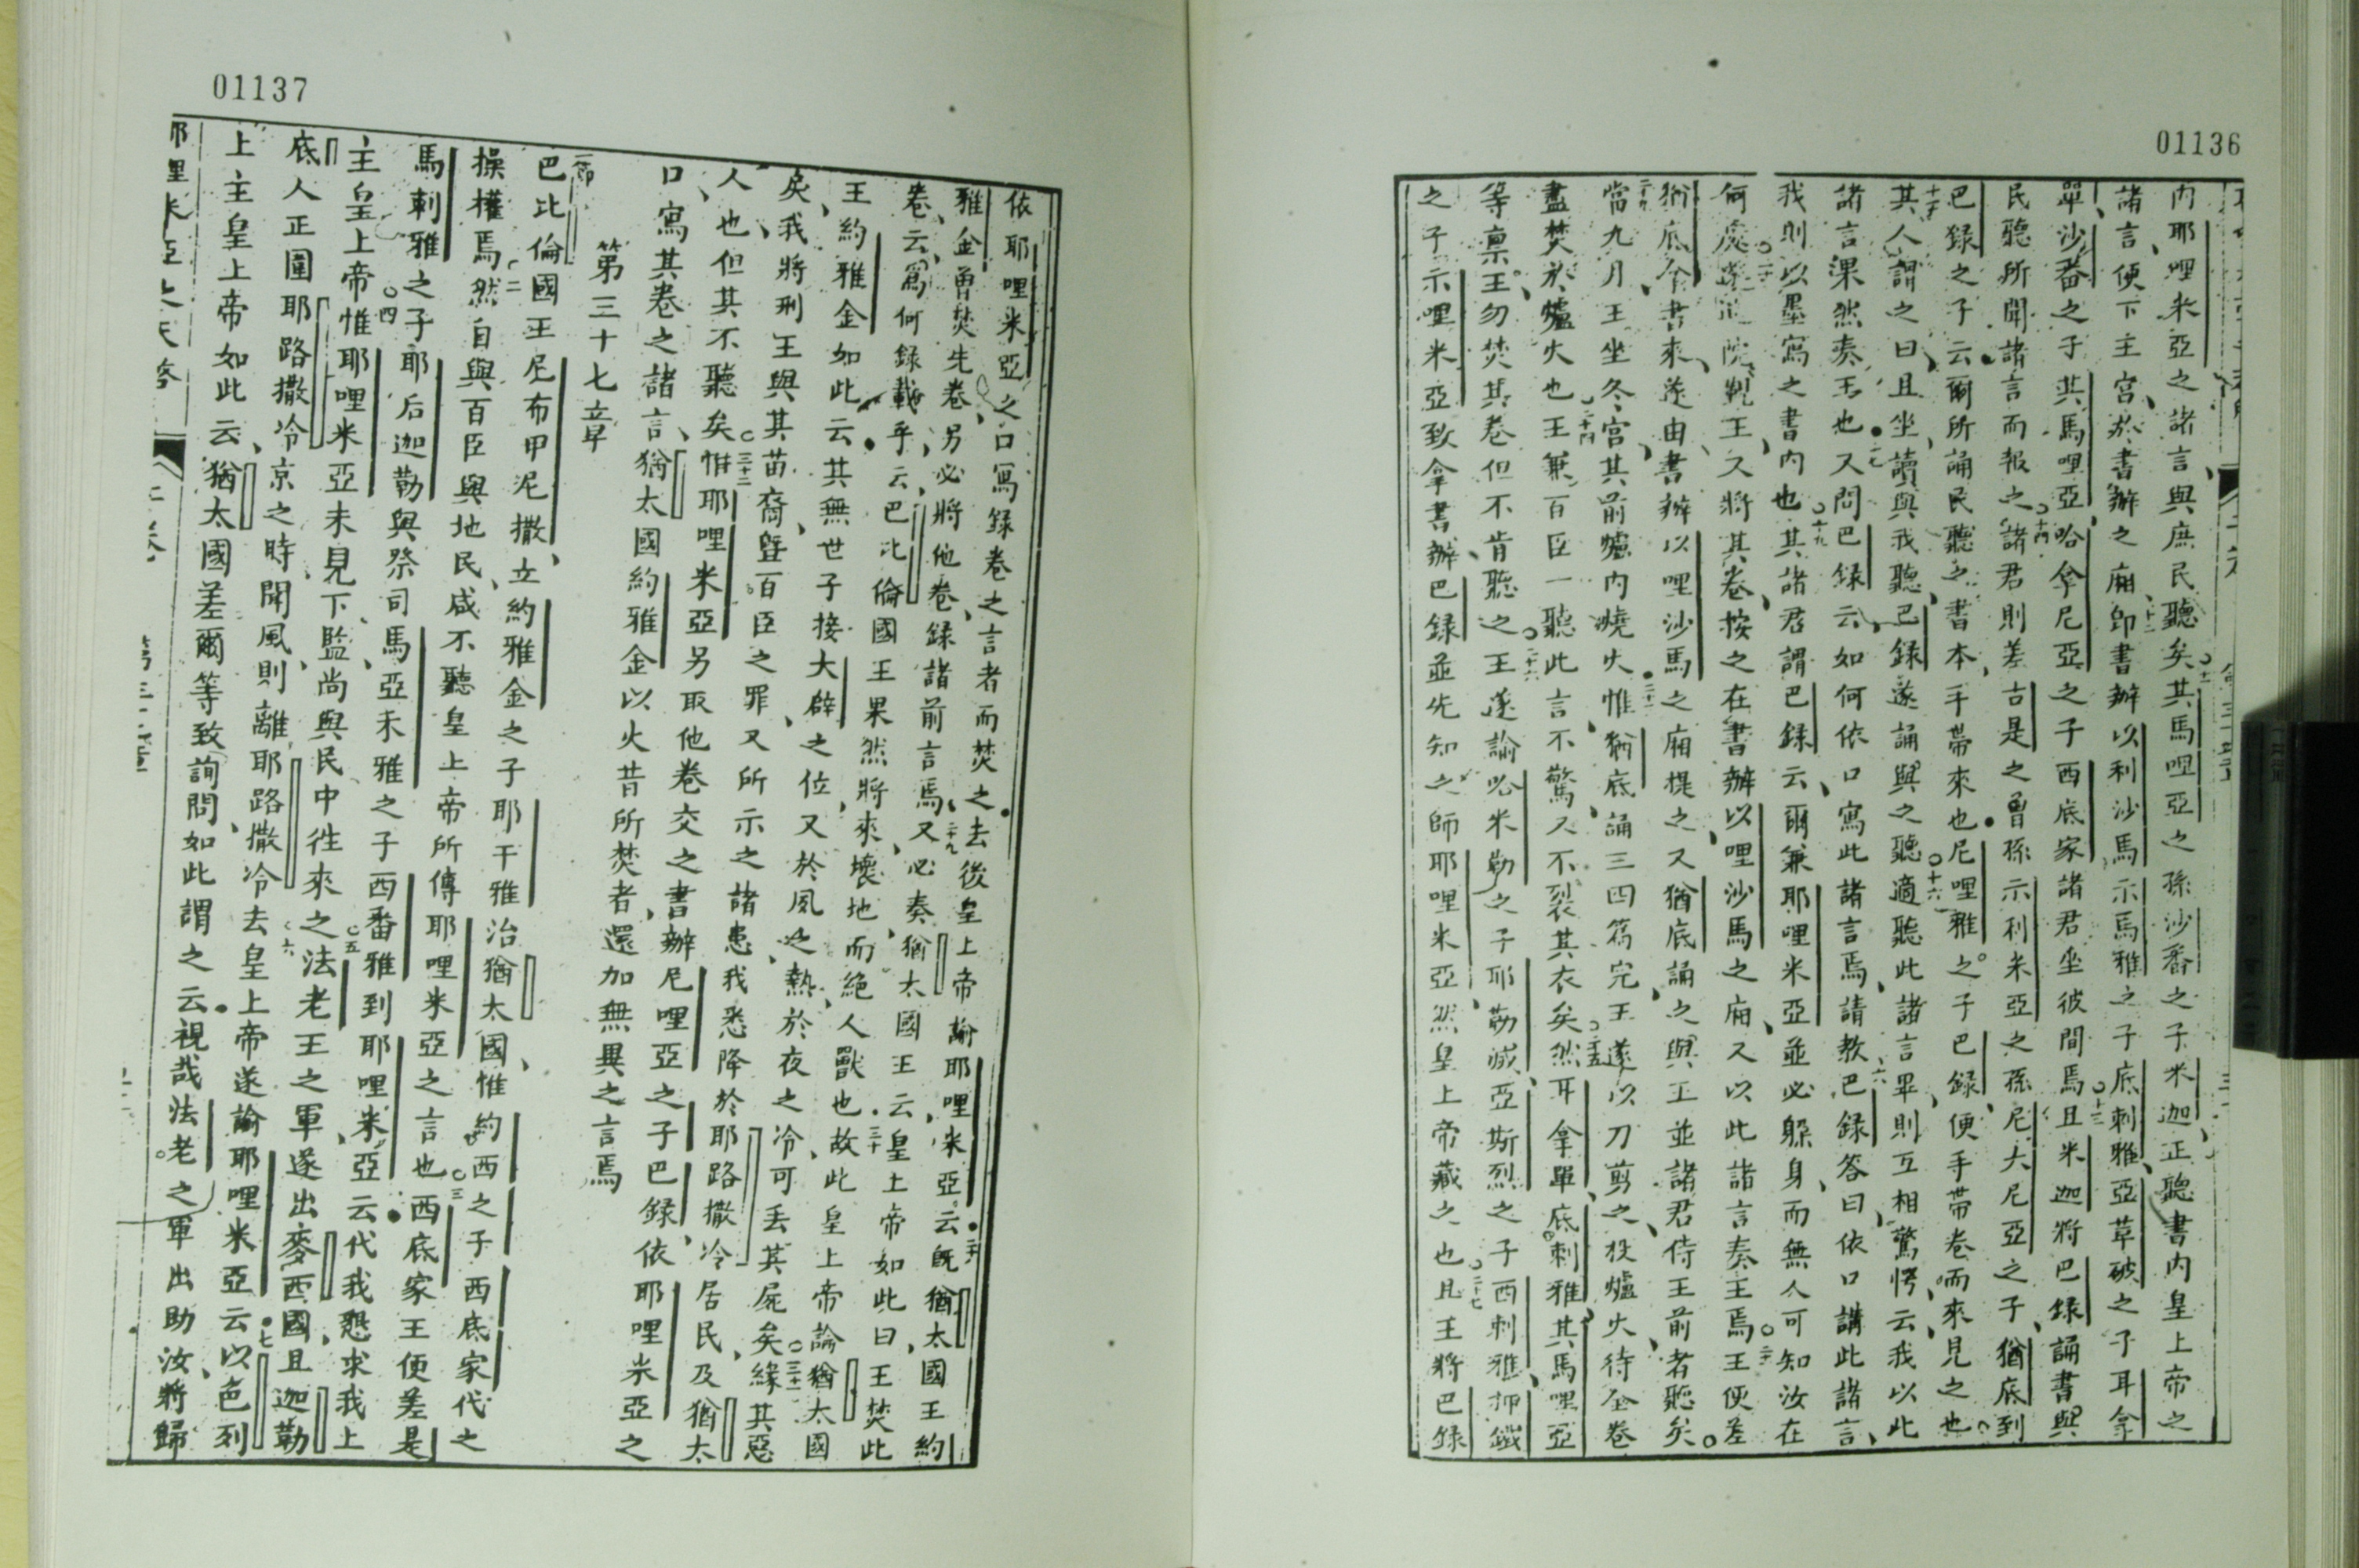 01136
內耶哩米亞之諸言與庶民聽矣其馬哩亞之孫沙番之子米迦正聽書內皇上帝之
諸言便下主宮於書辦之廂即書辦以利沙馬示馬雅之子底刺雅亞革破之子耳拿
單沙番之子其馬哩亞哈拿尼亞之子西底家諸君坐彼間焉且米迦將巴錄誦書與
民聽所聞諸言而報之諸君則差古是之曾孫示利米亞之孫尼大尼亞之子猶底到
巴錄之子云爾所誦民聽之書本手帶來也尼哩雅之子巴錄便手帶卷而來見之也
其人謂之曰且坐讀與我聽巴錄遂誦與之聽適聽此諸言畢則互相驚愕云我以此
諸言果然奏王也又問巴錄云如何依口寫此諸言焉請教巴錄答曰依口講此諸言
我則以墨寫之書內也其諸君謂巴錄云爾兼耶哩米亞並必躲身而無人可知汝在
何處遂院覲王又將其卷按之在書辦以哩沙馬之廂又以此諸言奏主焉王便差
猶底全書來遂由書辦以哩沙馬之廂提之又猶底誦之與王並諸君侍王前者聽矣
當九月王坐冬宮其前爐內燒火惟猶底誦三四篇完王遂以刀剪之投爐火待全卷
盡焚於爐火也王兼百臣一聽此言不驚又不裂其衣矣然耳拿單底刺雅其馬哩亞
等稟王勿焚其卷但不肯聽之王遂諭必米勒之子耶勒滅亞斯烈之子西刺雅押鐵
之子示哩米亞致拿書辦巴錄並先知之師耶哩米亞然皇上帝藏之也且王將巴錄
01137
依耶哩米亞之口寫錄卷之言者而焚之去後皇上帝諭耶哩米亞云既猶太國王約
雅金曾焚先卷另必將他卷錄諸前言焉又必奏猶太國王云皇上帝如此曰王焚此
卷云爲何錄載乎云巴比倫國王果然將來壞地而絕人獸也故此皇上帝論猶太國
王約雅金如此云其無世子接大辟之位又於風之熱於夜之冷可丟其屍矣緣其惡
矣我將刑王與其苗裔暨百臣之罪又所示之諸患我悉降於耶路撒冷居民及猶太
人也但其不聽矣惟耶哩米亞另取他卷交之書辦尼哩亞之子巴錄依耶哩米亞之
口寫其卷之諸言猶太國約雅金以火昔所焚者還加無異之言焉
第三十七章
巴比倫國王尼布甲尼撒立約雅金之子耶干雅治猶太國惟約西之子西底家代之
操權焉然自與百臣與地民咸不聽皇上帝所傳耶哩米亞之言也西底家王便差是
馬刺雅之子耶后迦勒與祭司馬亞未雅之子西番雅到耶哩米亞云代我懇求我上
主皇上帝惟耶哩米亞未見下監尚與民中徃來之法老王之軍遂出麥西國且迦勒
底人正圍耶路撒冷京之時聞風則離耶路撒冷去皇上帝遂諭耶哩米亞云以色列
上主皇上帝如此云猶太國差爾等致詢問如此謂之云視哉法老之軍出助汝將歸